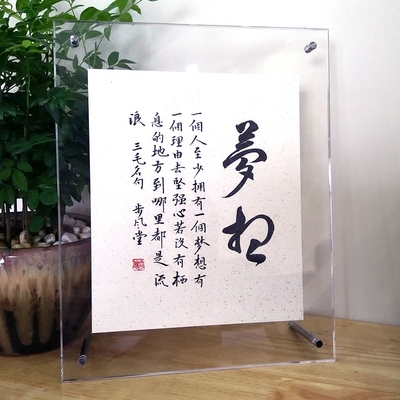 夢想
一個人至少拥有一個梦想有
一個理由去坚强心若没有栖
息的地方到哪里都是流
浪 三毛名句 步风堂